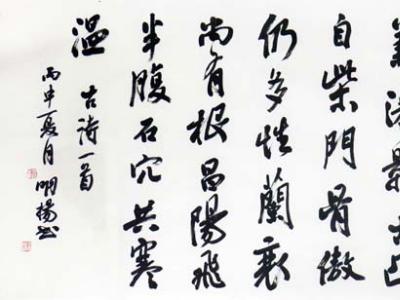 清影
自柴門骨傲
仍多性蘭衰
尚有根昌陽飛
半腹石穴共寒
溫
古詩一首
丙申夏月 明楊书